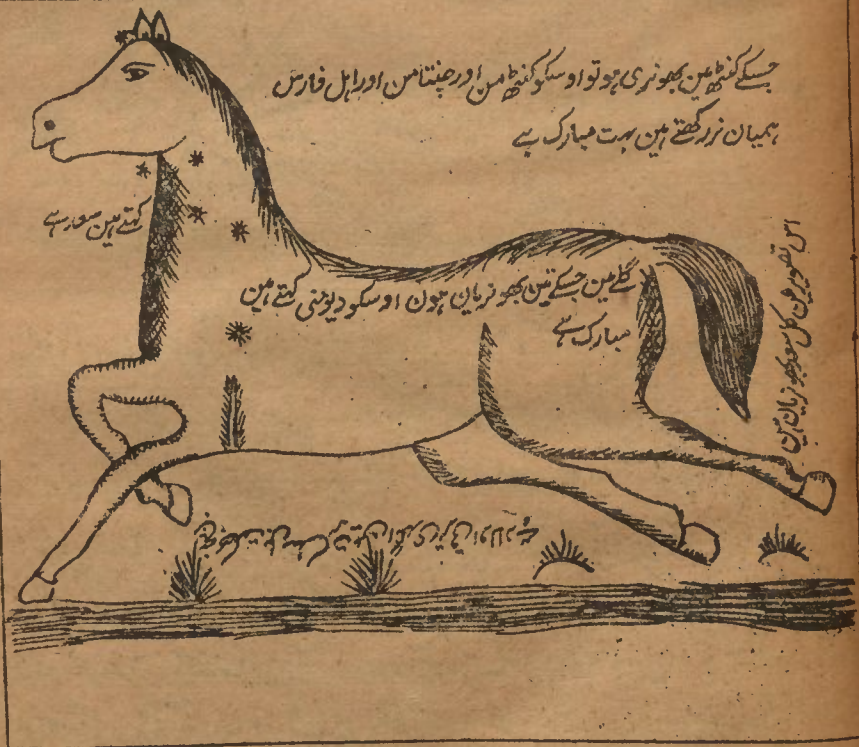 جسکے کنٹھ مین بھونری ہو تو اوسکو کنٹھ من اور چنتامن اور اہل فارس
ہمیان زر کہتے ہین بہت مبارک ہے
کہتے ہین سعد ہے
گلے مین جسکے تین بھونریان ہون اوسکو دیومنی کہتے ہین
مبارک ہے
اس تصویر مین کل سعد بھونریان ہین